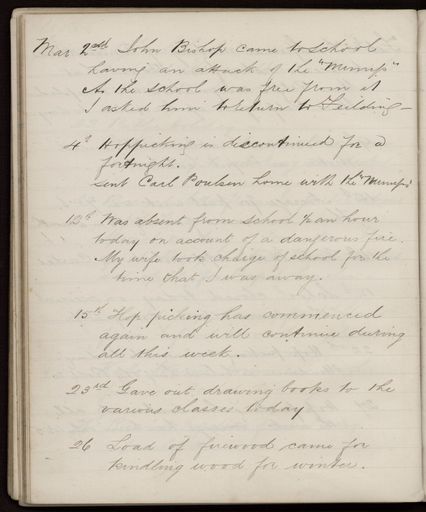 Mar 2nd John Bishop came to school
having an attack of the "Mumps"
As the school was free from it
I asked him to return to Feilding -
4th Hoppicking is discontinued for a
fortnight.
Sent Carl Poulsen home with the "Mumps"
12th Was absent from school ½ an hour
today on account of a dangerous fire.
My wife took charge of school for the
time that I was away.
15th Hop picking has commenced
again and will continue during
all this week.
23rd Gave out drawing books to the
various classes today
26 Load of firewood came for
kindling wood for winter.